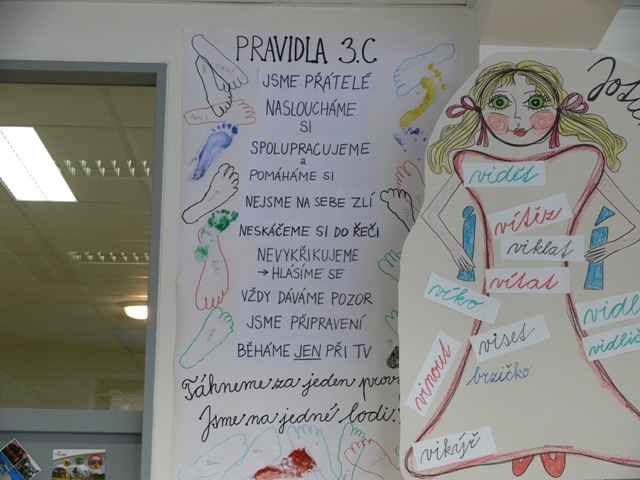 PRAVIDLA 3.C
JSME PŘÁTELÉ
NASLOUCHÁME
SI
SPOLUPRACUJEME
a
POMÁHÁME SI
NEJSME NA SEBE ZLÍ
NESKÁČEME SI DO ŘEČI
NEVYKŘIKUJEME
→ HLÁSÍME SE
VŽDY DÁVÁME POZOR
JSME PŘIPRAVENÍ
BĚHÁME JEN PŘI TV
Táhneme za jeden prov
Jsme na jedné lodi.
vidět
vítěz
viklat
vítat
víko
vidl
viset
vidlič
vinout
brzičko
vikýř